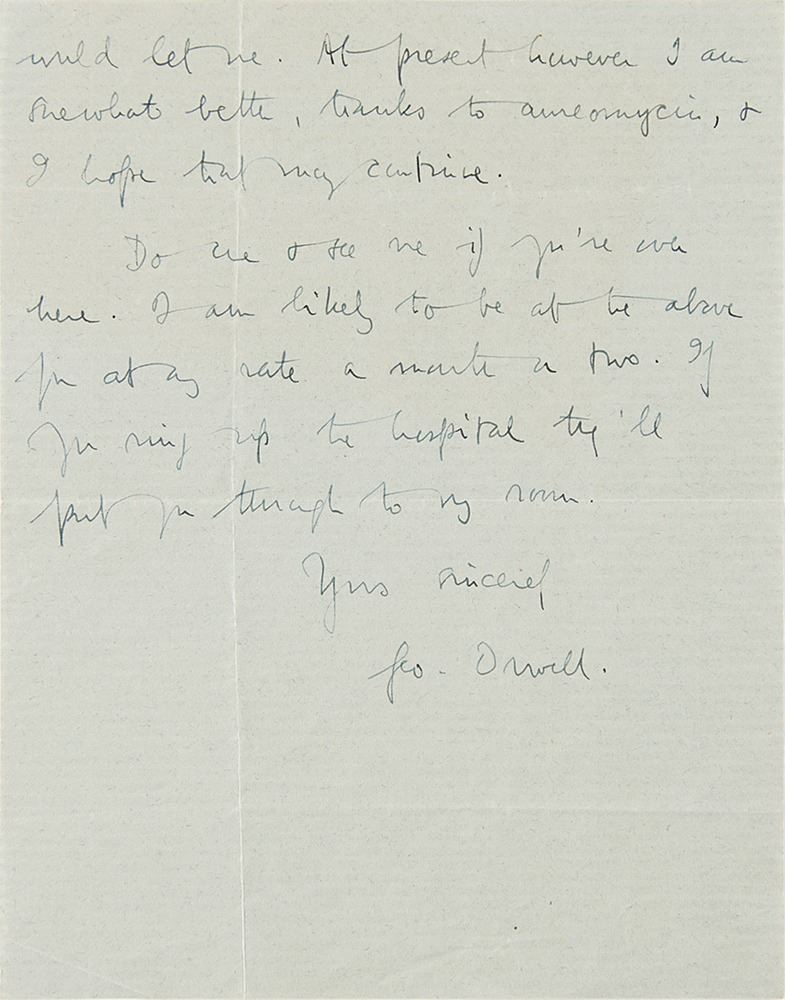 would let me. At present however I am
somewhat better, thanks to aureomycin, &
I hope that may continue.
Do come & see me if you're ever
here. I am likely to be at the above
for at any rate a month or two. If
you ring up the hospital they'll
put you through to my room.
Yours sincerely
Geo. Orwell.